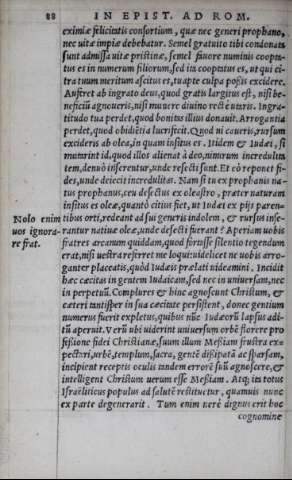 88 IN EPIST. AD ROM.
eximiæ felicitatis consortium, quæ nec generi prophano,
nec uitæ impiæ debebatur. Semel gratuito tibi condonata
sunt admissa uitæ pristinæ, semel fauore numinis cooptatus
es in numerum filiorum, sed ita cooptatus es, ut qui citra
tuum meritum ascitus es, tuapte culpa possis excidere.
Auferet ab ingrato deus, quod gratis largitus est, nisi beneficiū
agnoueris, nisi munere diuino recte uteris. Ingratitudo
tua perdet, quod bonitas illius donauit. Arrogantia
perdet, quod obidiētia lucrificit. Quod ni caueris, rursum
excideris ab olea, in quam insitus es. Itidem & Iudæi, si
mutarint id, quod illos alienat à deo, nimirum incredulita
tem, denuò inserentur, unde resecti sunt. Et eò reponet fides,
unde deiecit incredulitas. Nam si tu ex prophanis natus
prophanus, ceu desectus ex oleastro, præter naturam
insitus es oleæ, quanto citius fiet, ut Iudæi ex pijs paren-
Nolo enim tibus orti, redeant ad sui generis indolem, & rursus inse-
uos ignora- rantur natiuæ oleæ, unde desecti fuerant? Aperiam uobis
re frat. fratres arcanum quiddam, quod forsasse silentio tegendum
erat, nisi uestra referret me loqui: uidelicet ne uobis arro-
ganter placeatis, quòd Iudæis prælati uideamini. Incidit
hæc cæcitas in gentem Iudaicam, sed nec in uniuersam, nec
in perpetuū. Complures & hinc agnoscunt Christum, &
cæteri tantisper in sua cæcitate persistent, donec gentium
numerus fuerit expletus, quibus nūc Iudæorū lapsus aditū
aperuit. Verū ubi uiderint uniuersum orbē florere professione
fidei Christianæ, suum illum Meßiam frustra expectari,
urbē, templum, sacra, gentē dissipatā ac sparsam,
incipient receptis oculis tandem errorē suū agnoscere, &
intelligent Christum uerum esse Meßiam. Atq; ita totus
Israëliticus populus ad salutē restituetur, quamuis nunc
ex parte degenerarit. Tum enim uerè dignus erit hoc
cognomine